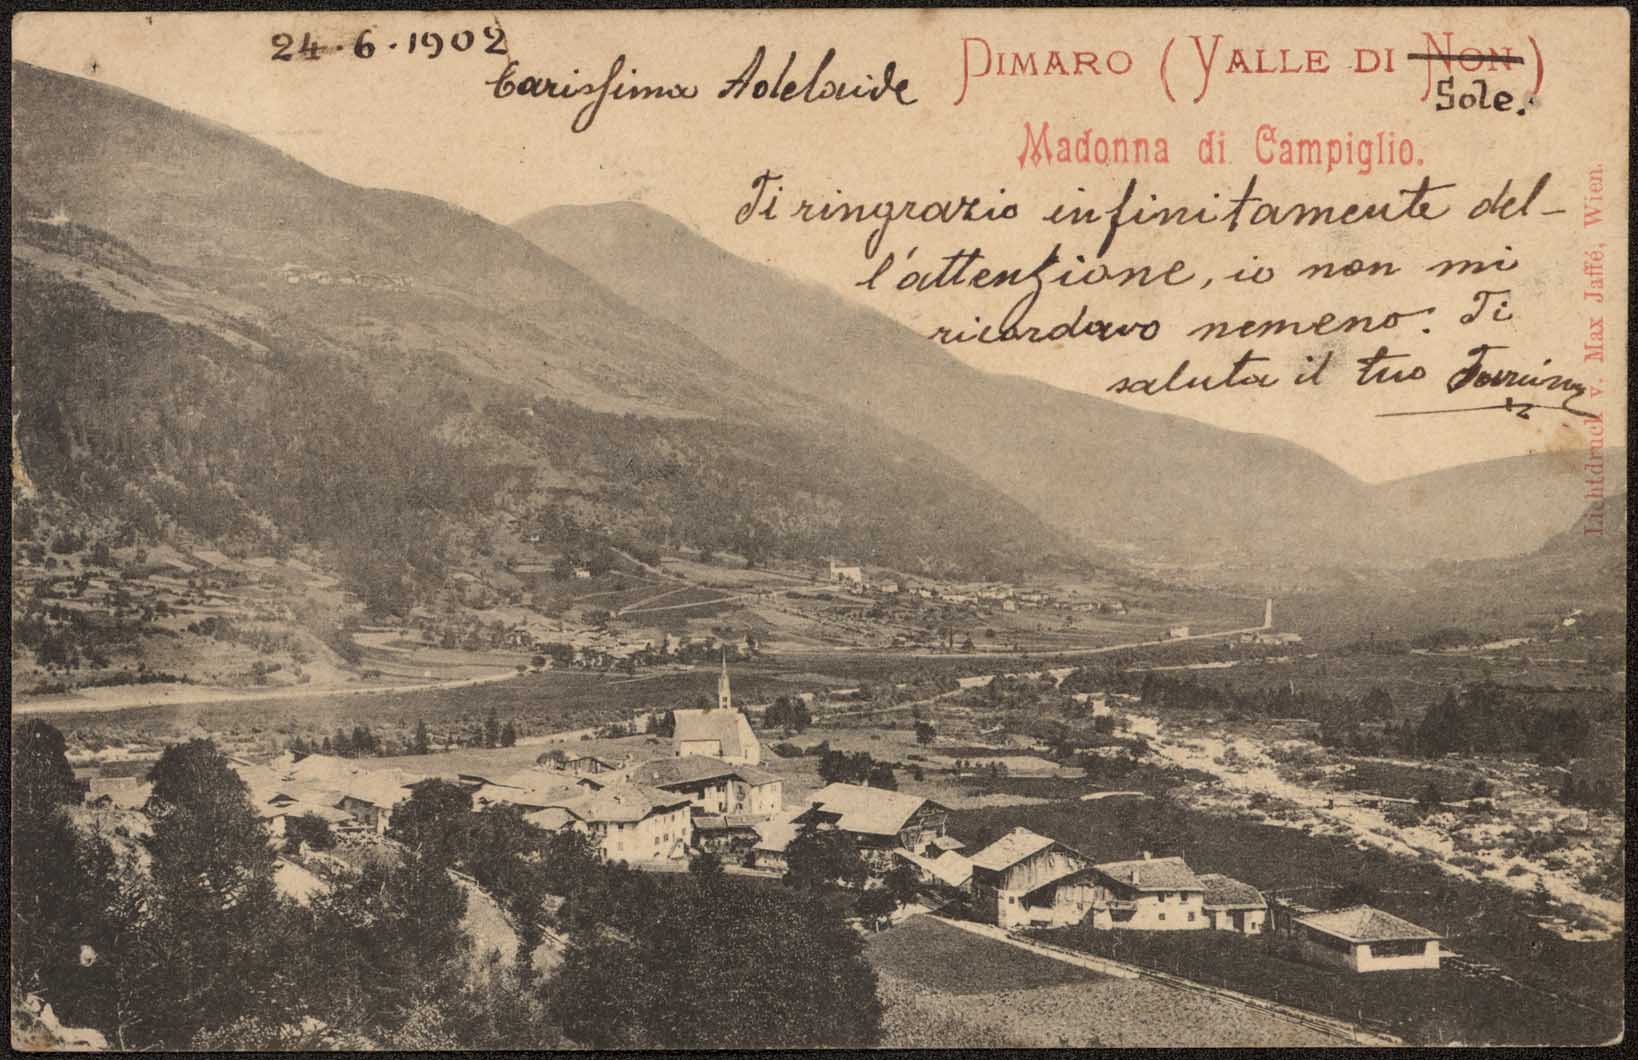 24·6·1902
Carissima Adelaide
DIMARO (VALLE DI NON)
Sole.
Madonna di Campiglio.
Ti ringrazio infinitamente del-
l'attenzione, io non mi
ricordavo nemeno. Ti
saluta il tuo
Lichtdruck v. Max Jaffé, Wien.